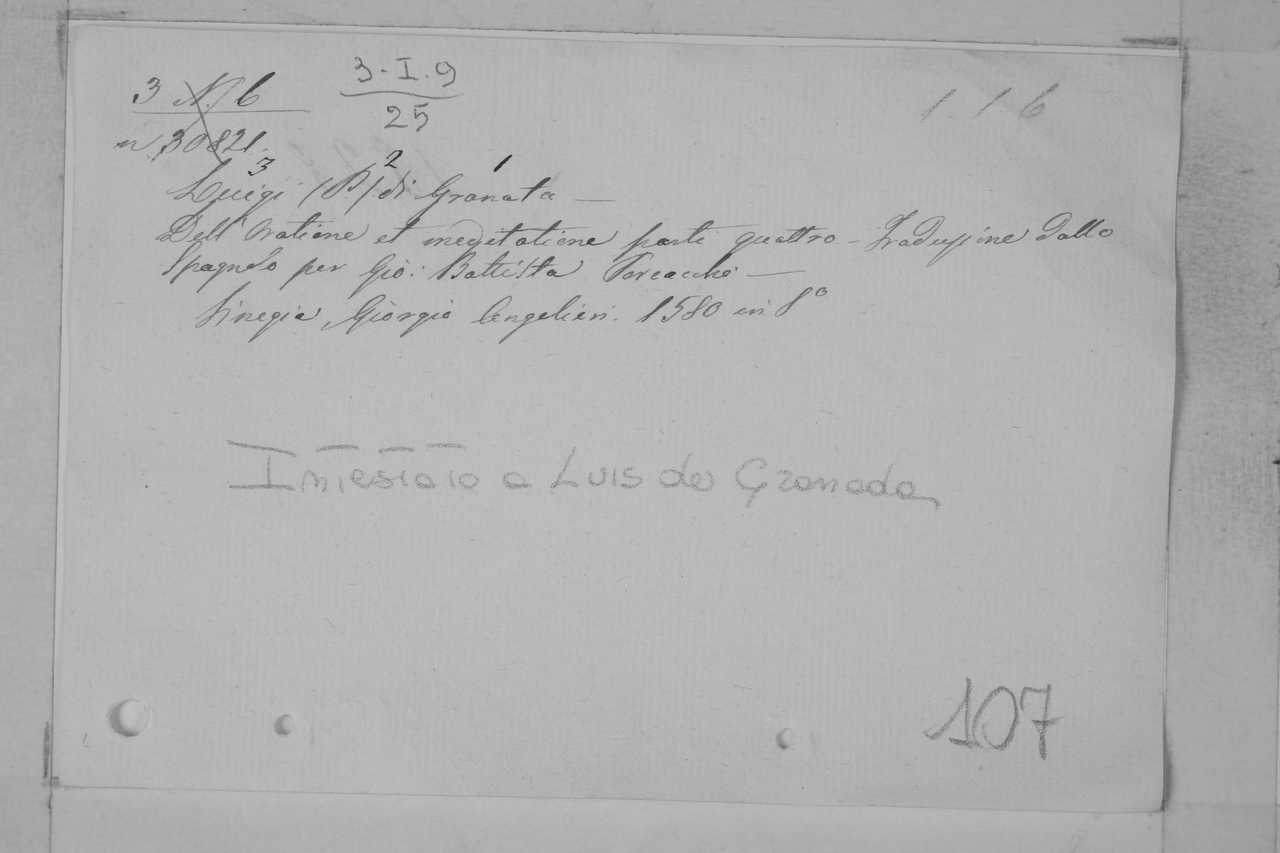 3 N. 6
3-I.9
25
1.1.6
n 30821.
3 2 1
Luigi (P) di Granata —
Dell'Oratione et meditatione parti quattro - Traduzione dallo
Spagnolo per Gio: Battista Porcacchi —
Vinegia Giorgio Angelieri. 1580 in 8º
Intestato a Luis de Granada
107